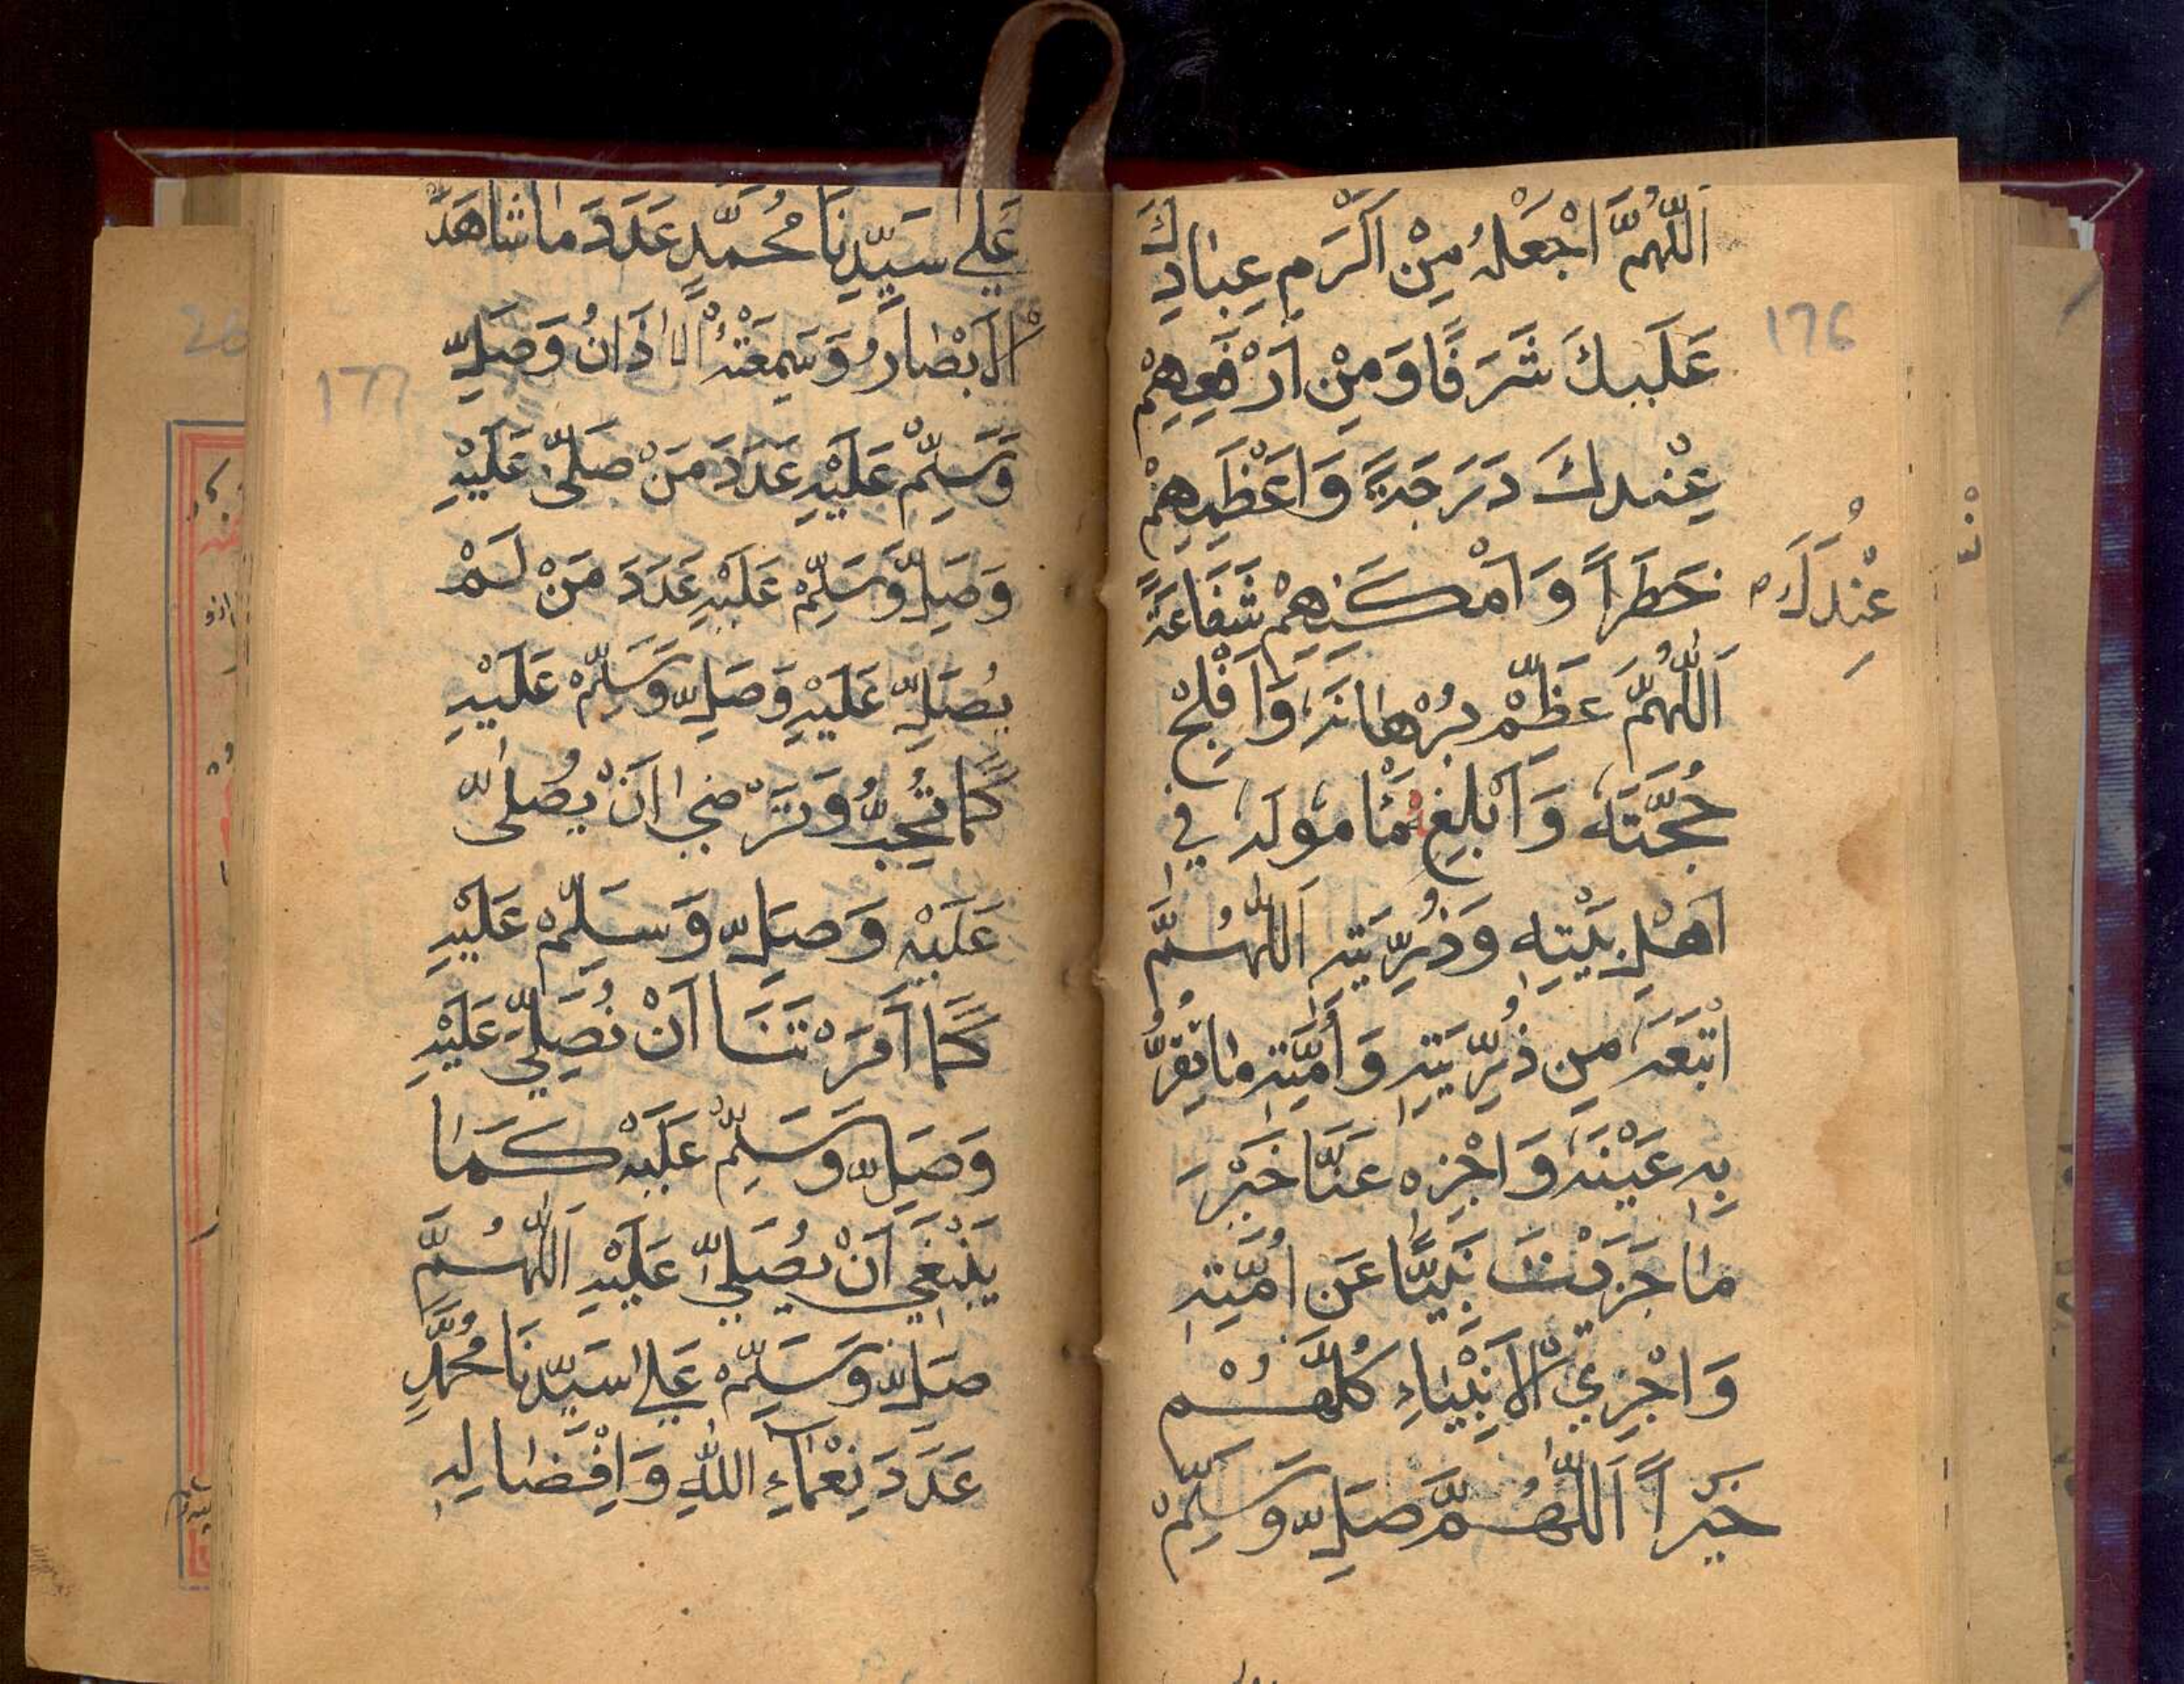 اَللّٰهُمَّ اجْعَلْهُ مِنْ اَكْرَمِ عِبَادِكَ
عَلَيْكَ شَرَفًا وَمِنْ اَرْفَعِهِمْ
عِنْدَكَ دَرَجَةً وَاَعْظَمِهِمْ
خَطَرًا وَاَمْكَنِهِمْ شَفَاعَةً
عِنْدَكَ
اَللّٰهُمَّ عَظِّمْ بُرْهَانَهُ وَاَفْلِجْ
حُجَّتَهُ وَاَبْلِغْهُ مَأْمُولَهُ فِي
اَهْلِ بَيْتِهِ وَذُرِّيَّتِهِ اَللّٰهُمَّ
اَتْبِعَهُ مِنْ ذُرِّيَّتِهِ وَاُمَّتِهِ مَا تَقَرُّ
بِهِ عَيْنَهُ وَاجْزِهِ عَنَّا خَيْرَ
مَا جَزَيْتَ نَبِيًّا عَنْ اُمَّتِهِ
وَاجْزِي الْاَنْبِيَاءِ كُلَّهُمْ
خَيْرًا اَللّٰهُمَّ صَلِّ وَسَلِّمْ
176
عَلٰى سَيِّدِنَا مُحَمَّدٍ عَدَدَ مَا شَاهَدَتْهُ
الْاَبْصَارُ وَسَمِعَتْهُ الْاٰذَانُ وَصَلِّ
وَسَلِّمْ عَلَيْهِ عَدَدَ مَنْ صَلّٰى عَلَيْهِ
وَصَلِّ وَسَلِّمْ عَلَيْهِ عَدَدَ مَنْ لَمْ
يُصَلِّ عَلَيْهِ وَصَلِّ وَسَلِّمْ عَلَيْهِ
كَمَا تُحِبُّ وَتَرْضٰى اَنْ يُصَلّٰى
عَلَيْهِ وَصَلِّ وَسَلِّمْ عَلَيْهِ
كَمَا اَمَرْتَنَا اَنْ نُصَلِّيَ عَلَيْهِ
وَصَلِّ وَسَلِّمْ عَلَيْهِ كَمَا
يَنْبَغِي اَنْ يُصَلّٰى عَلَيْهِ اَللّٰهُمَّ
صَلِّ وَسَلِّمْ عَلٰى سَيِّدِنَا مُحَمَّدٍ
عَدَدَ نِعْمَاءِ اللّٰهِ وَاِفْضَالِهِ
177